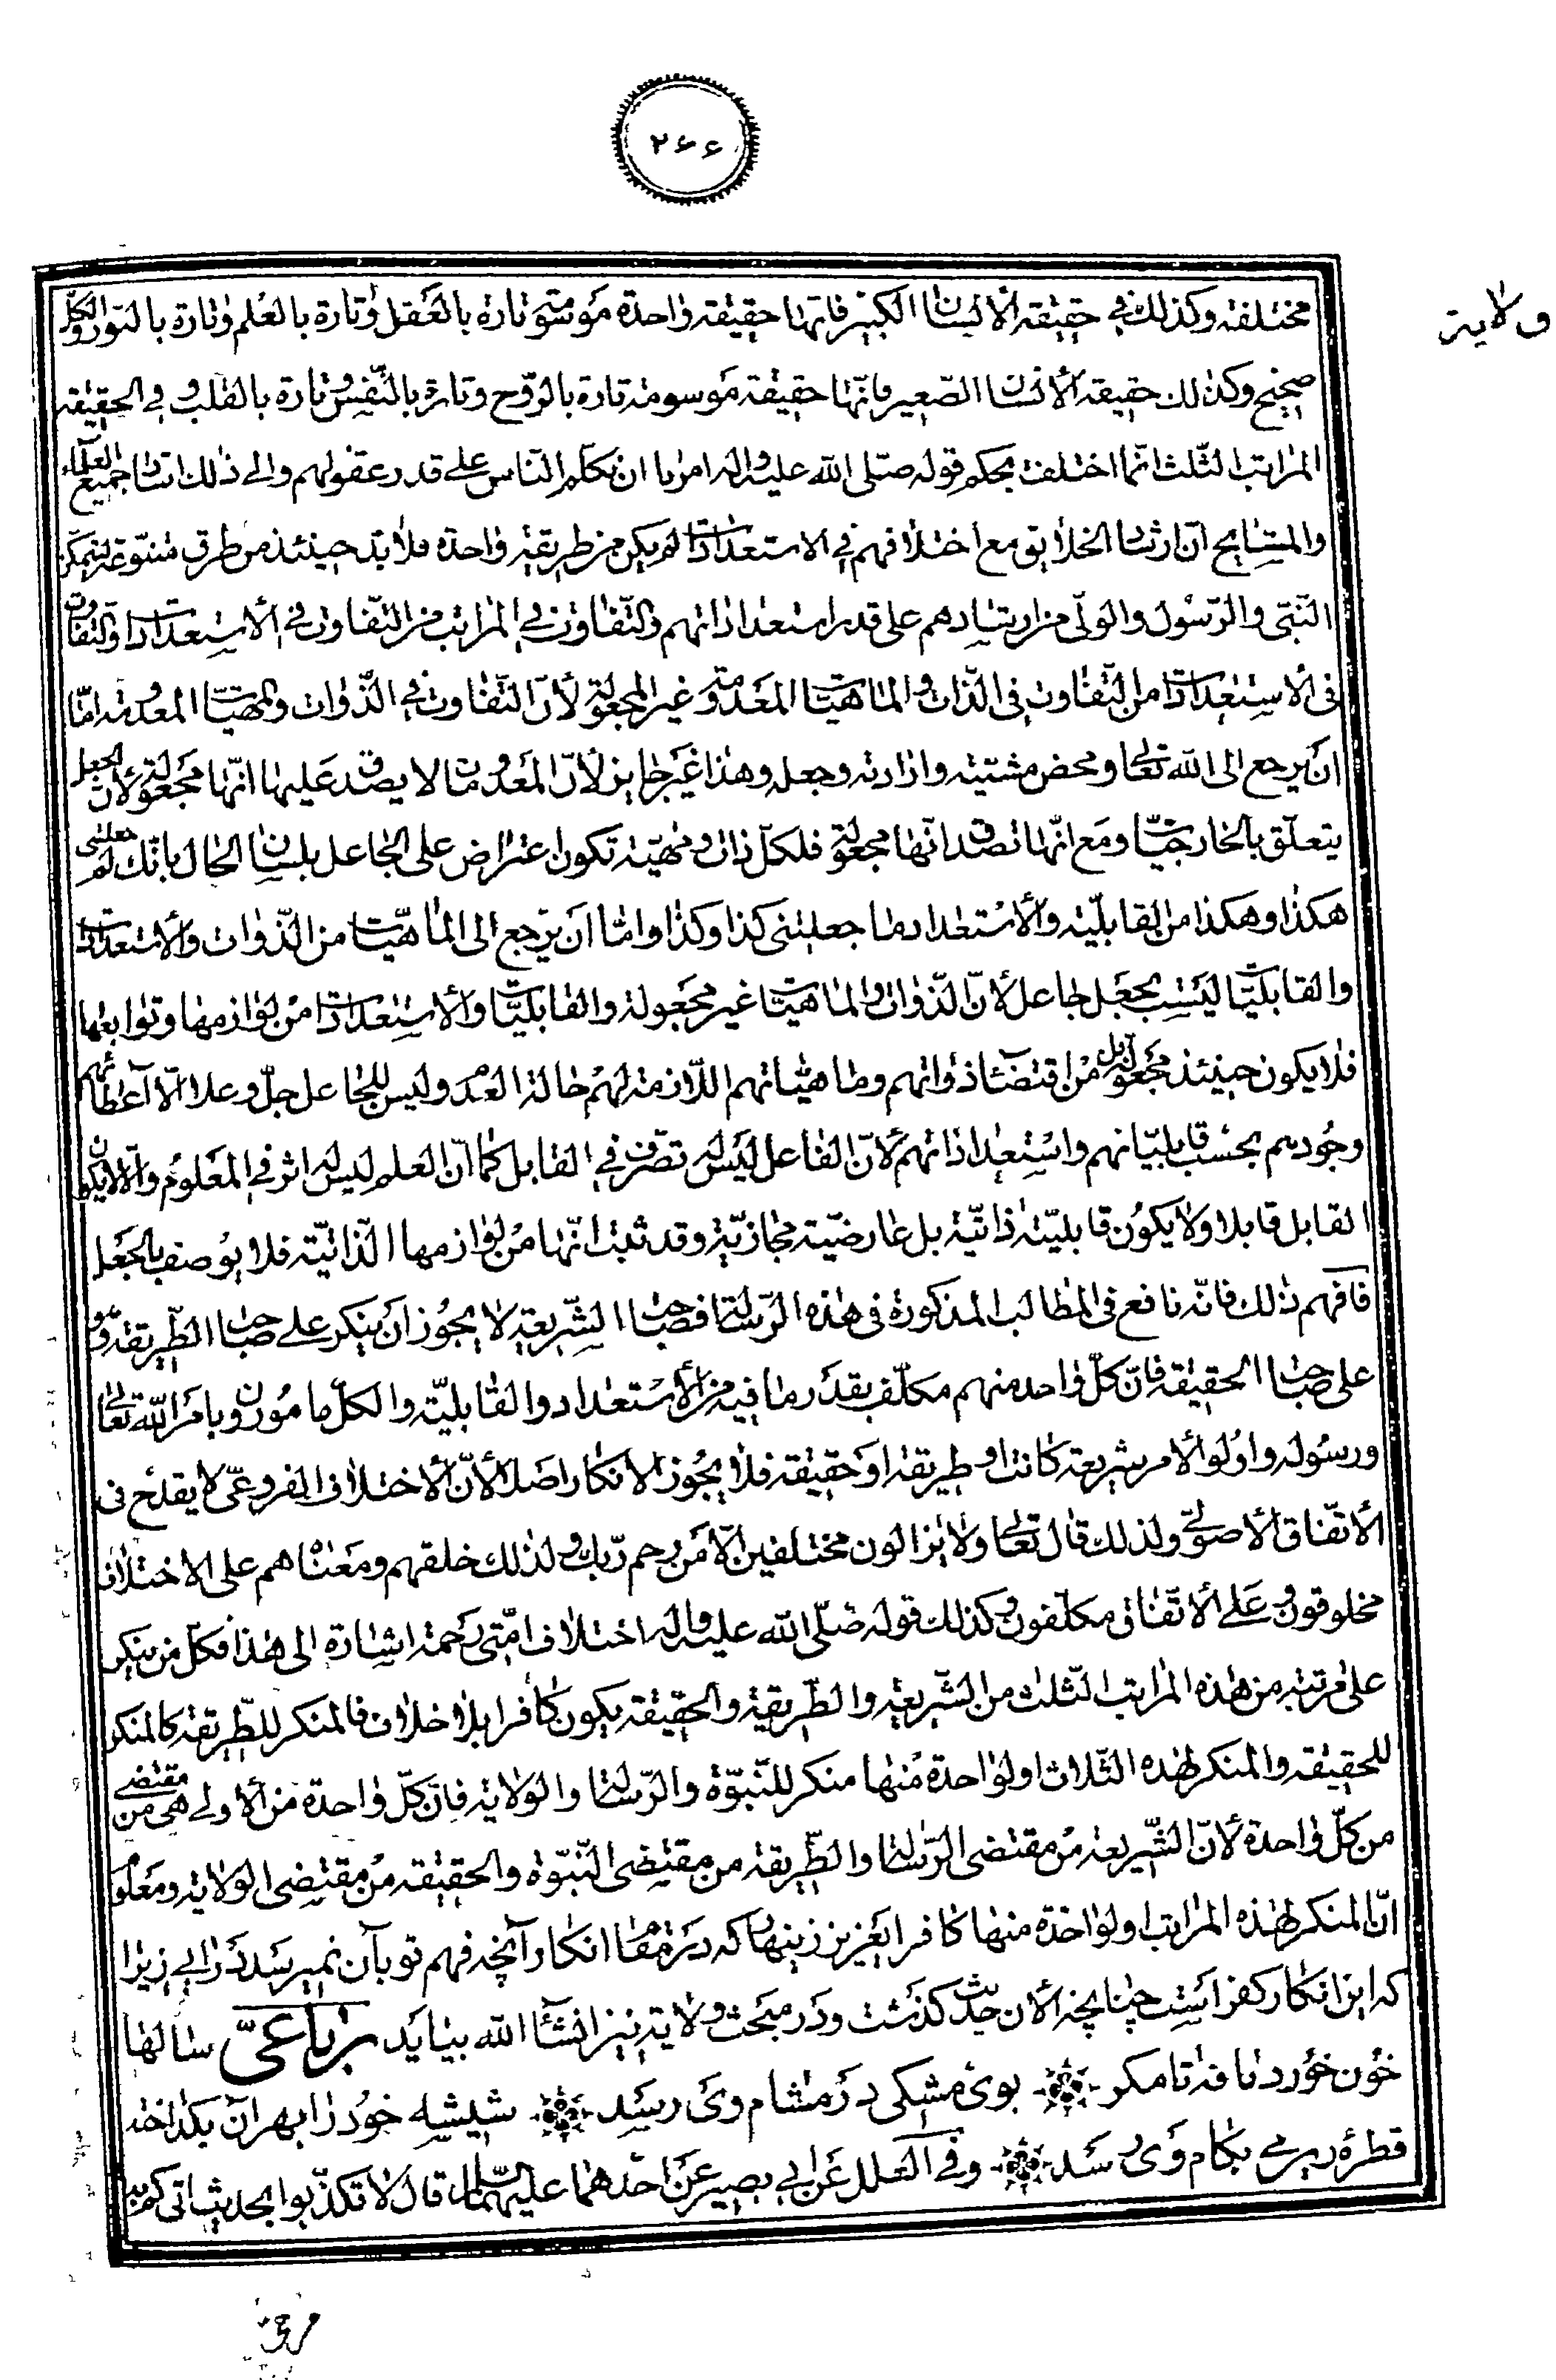 ۲۶۶
ولایة
مختلفة وكذلك في حقيقة الانسان الكبير فانها حقيقة واحدة موسومة تارة بالعقل وتارة بالعلم وتارة بالنور والكل
صحيح وكذلك حقيقة الانسان الصغير فانّها حقيقة موسومة تارة بالرّوح وتارة بالنّفس وتارة بالقلب وفي الحقيقة
المراتب الثلث انّما اختلفت بحكم قوله صلى الله عليه واله امرنا ان نكلّم النّاس على قدر عقولهم والى ذلك اشار جميع العلماء
والمشايخ انّ ارشاد الخلايق مع اختلافهم في الاستعدادات لم يكن من طريقة واحدة فلابد حينئذ من طرق متنوّعة ليتمكن
النّبي والرّسول والولّي من ارشادهم على قدر استعداداتهم والتّفاوت في المراتب من التّفاوت في الاستعدادات والتفاوت
فى الاستعدادات من التّفاوت في الذّات والماهيّات المعدومة وغير المجعولة لأنّ التّفاوت في الذّوات والمهيّات المعدومة امّا
ان يرجع الى الله تعالى ومحض مشيته وارادته وجعله وهذا غير جايز لأنّ المعدومات لا يصدق عليها انّها مجعولة لأنّ الجعل
يتعلّق بالخارجيّات ومع انّها تصدق انّها مجعولة فلكلّ ذات ومهيّة تكون اعتراض على الجاعل بلسان الحال بانّك لم جعلتنى
هكذا وهكذا من القابليّة والاستعداد وما جعلتنى كذا وكذا وامّا ان يرجع الى الماهيّات من الذّوات والاستعدادات
والقابليّات ليست بجعل جاعل لأنّ الذّوات والماهيّات غير مجعولة والقابليّات والاستعدادات من لوازمها وتوابعها
فلا يكون حينئذ مجعولة بل من اقتضاء ذواتهم وماهيّاتهم اللّازمة لهم حالة العدم وليس للجاعل جلّ وعلا الّا اعطائهم
وجودهم بحسب قابليّاتهم واستعداداتهم لأنّ الفاعل ليس له تصّرف في القابل كما انّ العلم ليس له اثر في المعلوم والّا لا يكون
القابل قابلا ولا يكون قابليّته ذاتيّة بل عارضيّة مجازيّة وقد ثبت انّها من لوازمها الذّاتيّة فلا يوصف بالجعل
فافهم ذلك فانّه نافع في المطالب المذكورة فى هذه الرّسالة فصاحب الشّريعة لا يجوز ان ينكر على صاحب الطّريقة ولا
على صاحب الحقيقة فانّ كلّ واحد منهم مكلّف بقدر ما فيه من الاستعداد والقابليّة والكلّ مامورون وبامر الله تعالى
ورسوله واولو الامر شريعة كانت او طريقة او حقيقة فلا يجوز الانكار اصلا لأنّ الاختلاف الفروعىّ لا يقدح فى
الاتّفاق الاصولي ولذلك قال تعالى ولا يزالون مختلفين الّا من رحم ربّك ولذلك خلقهم ومعناه هم على الاختلاف
مخلوقون وعلى الاتّفاق مكلّفون وكذلك قوله صلّى الله عليه واله اختلاف امّتى رحمة اشارة الى هذا فكلّ من ينكر
على مرتبة من هذه المراتب الثّلث من الشّريعة والطّريقة والحقيقة يكون كافرا بلا خلاف فالمنكر للطّريقة كالمنكر
للحقيقة والمنكر لهذه الثّلاث او لواحدة منها منكر للنّبوّة والرّسالة والولاية فانّ كلّ واحدة من الأولى هى من مقتضى
من كلّ واحدة لأنّ الشّريعة من مقتضى الرّسالة والطّريقة من مقتضى النّبوّة والحقيقة من مقتضى الولاية ومعلوم
انّ المنكر لهذه المراتب او لواحدة منها كافر ايعزيز زينهار كه در مقام انكار آنچه فهم تو بآن نميرسد در ايى زيرا
كه اين انكار كفر است چنانچه الان حديث گذشت ودر مبحث ولاية نيز انشاء الله بيايد رباعىّ سالها
خون خورد نافه تا مگر ٭ بوى مشكى در مشام وى رسد ٭ شيشه خود را بهر آن بگداخت
قطرۀ در مى بكام وى رسد ٭ وفى العلل عن ابى بصير عن احدهما عليهما السلام قال لا تكذّبوا بحديث اتى كم به